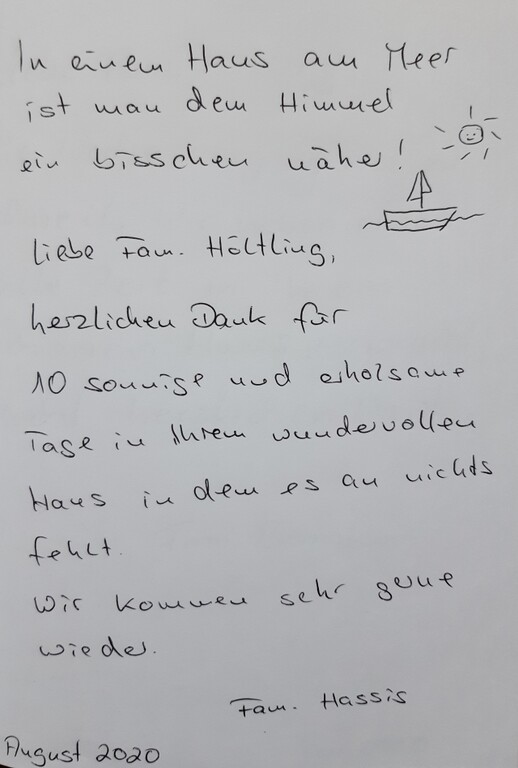 In einem Haus am Meer
ist man dem Himmel
ein bisschen näher!
liebe Fam. Höltling,
herzlichen Dank für
10 sonnige und erholsame
Tage in Ihrem wundervollen
Haus in dem es an nichts
fehlt.
Wir kommen sehr gerne
wieder.
Fam. Hassis
August 2020